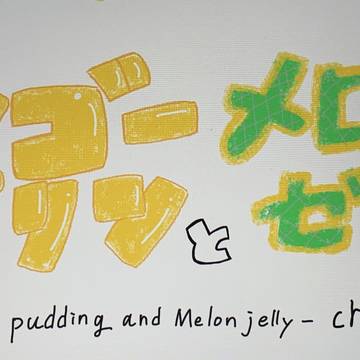 ゴー メロ
リン と ゼ
pudding and Melon jelly – ch